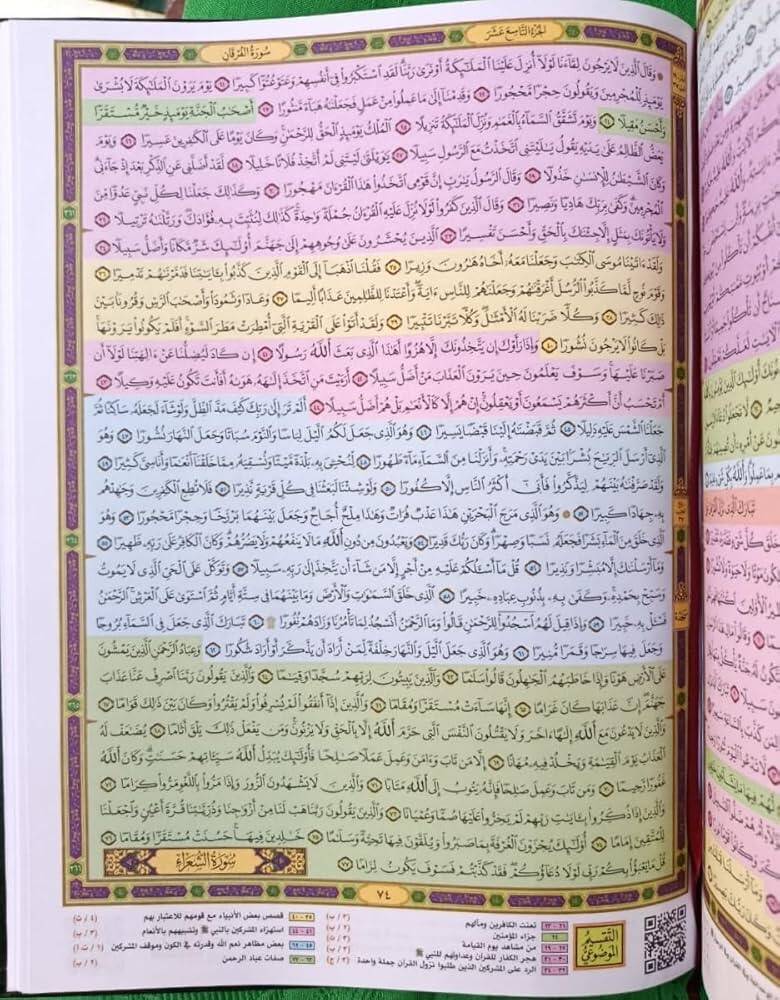 الجزء التاسع عشر
سورة الفرقان
وَقَالَ الَّذِينَ لَا يَرْجُونَ لِقَاءَنَا لَوْلَا أُنزِلَ عَلَيْنَا الْمَلَائِكَةُ أَوْ نَرَىٰ رَبَّنَا لَقَدِ اسْتَكْبَرُوا فِي أَنفُسِهِمْ وَعَتَوْا عُتُوًّا كَبِيرًا ٢١ يَوْمَ يَرَوْنَ الْمَلَائِكَةَ لَا بُشْرَىٰ
يَوْمَئِذٍ لِّلْمُجْرِمِينَ وَيَقُولُونَ حِجْرًا مَّحْجُورًا ٢٢ وَقَدِمْنَا إِلَىٰ مَا عَمِلُوا مِنْ عَمَلٍ فَجَعَلْنَاهُ هَبَاءً مَّنثُورًا ٢٣ أَصْحَابُ الْجَنَّةِ يَوْمَئِذٍ خَيْرٌ مُّسْتَقَرًّا
وَأَحْسَنُ مَقِيلًا ٢٤ وَيَوْمَ تَشَقَّقُ السَّمَاءُ بِالْغَمَامِ وَنُزِّلَ الْمَلَائِكَةُ تَنزِيلًا ٢٥ الْمُلْكُ يَوْمَئِذٍ الْحَقُّ لِلرَّحْمَٰنِ وَكَانَ يَوْمًا عَلَى الْكَافِرِينَ عَسِيرًا ٢٦ وَيَوْمَ
يَعَضُّ الظَّالِمُ عَلَىٰ يَدَيْهِ يَقُولُ يَا لَيْتَنِي اتَّخَذْتُ مَعَ الرَّسُولِ سَبِيلًا ٢٧ يَا وَيْلَتَىٰ لَيْتَنِي لَمْ أَتَّخِذْ فُلَانًا خَلِيلًا ٢٨ لَّقَدْ أَضَلَّنِي عَنِ الذِّكْرِ بَعْدَ إِذْ جَاءَنِي
وَكَانَ الشَّيْطَانُ لِلْإِنسَانِ خَذُولًا ٢٩ وَقَالَ الرَّسُولُ يَا رَبِّ إِنَّ قَوْمِي اتَّخَذُوا هَٰذَا الْقُرْآنَ مَهْجُورًا ٣٠ وَكَذَٰلِكَ جَعَلْنَا لِكُلِّ نَبِيٍّ عَدُوًّا مِّنَ
الْمُجْرِمِينَ وَكَفَىٰ بِرَبِّكَ هَادِيًا وَنَصِيرًا ٣١ وَقَالَ الَّذِينَ كَفَرُوا لَوْلَا نُزِّلَ عَلَيْهِ الْقُرْآنُ جُمْلَةً وَاحِدَةً كَذَٰلِكَ لِنُثَبِّتَ بِهِ فُؤَادَكَ وَرَتَّلْنَاهُ تَرْتِيلًا ٣٢
وَلَا يَأْتُونَكَ بِمَثَلٍ إِلَّا جِئْنَاكَ بِالْحَقِّ وَأَحْسَنَ تَفْسِيرًا ٣٣ الَّذِينَ يُحْشَرُونَ عَلَىٰ وُجُوهِهِمْ إِلَىٰ جَهَنَّمَ أُولَٰئِكَ شَرٌّ مَّكَانًا وَأَضَلُّ سَبِيلًا ٣٤
وَلَقَدْ آتَيْنَا مُوسَى الْكِتَابَ وَجَعَلْنَا مَعَهُ أَخَاهُ هَارُونَ وَزِيرًا ٣٥ فَقُلْنَا اذْهَبَا إِلَى الْقَوْمِ الَّذِينَ كَذَّبُوا بِآيَاتِنَا فَدَمَّرْنَاهُمْ تَدْمِيرًا ٣٦
وَقَوْمَ نُوحٍ لَّمَّا كَذَّبُوا الرُّسُلَ أَغْرَقْنَاهُمْ وَجَعَلْنَاهُمْ لِلنَّاسِ آيَةً وَأَعْتَدْنَا لِلظَّالِمِينَ عَذَابًا أَلِيمًا ٣٧ وَعَادًا وَثَمُودَ وَأَصْحَابَ الرَّسِّ وَقُرُونًا بَيْنَ
ذَٰلِكَ كَثِيرًا ٣٨ وَكُلًّا ضَرَبْنَا لَهُ الْأَمْثَالَ وَكُلًّا تَبَّرْنَا تَتْبِيرًا ٣٩ وَلَقَدْ أَتَوْا عَلَى الْقَرْيَةِ الَّتِي أُمْطِرَتْ مَطَرَ السَّوْءِ أَفَلَمْ يَكُونُوا يَرَوْنَهَا
بَلْ كَانُوا لَا يَرْجُونَ نُشُورًا ٤٠ وَإِذَا رَأَوْكَ إِن يَتَّخِذُونَكَ إِلَّا هُزُوًا أَهَٰذَا الَّذِي بَعَثَ اللَّهُ رَسُولًا ٤١ إِن كَادَ لَيُضِلُّنَا عَنْ آلِهَتِنَا لَوْلَا أَن
صَبَرْنَا عَلَيْهَا وَسَوْفَ يَعْلَمُونَ حِينَ يَرَوْنَ الْعَذَابَ مَنْ أَضَلُّ سَبِيلًا ٤٢ أَرَأَيْتَ مَنِ اتَّخَذَ إِلَٰهَهُ هَوَاهُ أَفَأَنتَ تَكُونُ عَلَيْهِ وَكِيلًا ٤٣
أَمْ تَحْسَبُ أَنَّ أَكْثَرَهُمْ يَسْمَعُونَ أَوْ يَعْقِلُونَ إِنْ هُمْ إِلَّا كَالْأَنْعَامِ بَلْ هُمْ أَضَلُّ سَبِيلًا ٤٤ أَلَمْ تَرَ إِلَىٰ رَبِّكَ كَيْفَ مَدَّ الظِّلَّ وَلَوْ شَاءَ لَجَعَلَهُ سَاكِنًا ثُمَّ
جَعَلْنَا الشَّمْسَ عَلَيْهِ دَلِيلًا ٤٥ ثُمَّ قَبَضْنَاهُ إِلَيْنَا قَبْضًا يَسِيرًا ٤٦ وَهُوَ الَّذِي جَعَلَ لَكُمُ اللَّيْلَ لِبَاسًا وَالنَّوْمَ سُبَاتًا وَجَعَلَ النَّهَارَ نُشُورًا ٤٧ وَهُوَ
الَّذِي أَرْسَلَ الرِّيَاحَ بُشْرًا بَيْنَ يَدَيْ رَحْمَتِهِ وَأَنزَلْنَا مِنَ السَّمَاءِ مَاءً طَهُورًا ٤٨ لِّنُحْيِيَ بِهِ بَلْدَةً مَّيْتًا وَنُسْقِيَهُ مِمَّا خَلَقْنَا أَنْعَامًا وَأَنَاسِيَّ كَثِيرًا ٤٩
وَلَقَدْ صَرَّفْنَاهُ بَيْنَهُمْ لِيَذَّكَّرُوا فَأَبَىٰ أَكْثَرُ النَّاسِ إِلَّا كُفُورًا ٥٠ وَلَوْ شِئْنَا لَبَعَثْنَا فِي كُلِّ قَرْيَةٍ نَّذِيرًا ٥١ فَلَا تُطِعِ الْكَافِرِينَ وَجَاهِدْهُم
بِهِ جِهَادًا كَبِيرًا ٥٢ وَهُوَ الَّذِي مَرَجَ الْبَحْرَيْنِ هَٰذَا عَذْبٌ فُرَاتٌ وَهَٰذَا مِلْحٌ أُجَاجٌ وَجَعَلَ بَيْنَهُمَا بَرْزَخًا وَحِجْرًا مَّحْجُورًا ٥٣ وَهُوَ
الَّذِي خَلَقَ مِنَ الْمَاءِ بَشَرًا فَجَعَلَهُ نَسَبًا وَصِهْرًا وَكَانَ رَبُّكَ قَدِيرًا ٥٤ وَيَعْبُدُونَ مِن دُونِ اللَّهِ مَا لَا يَنفَعُهُمْ وَلَا يَضُرُّهُمْ وَكَانَ الْكَافِرُ عَلَىٰ رَبِّهِ ظَهِيرًا ٥٥
وَمَا أَرْسَلْنَاكَ إِلَّا مُبَشِّرًا وَنَذِيرًا ٥٦ قُلْ مَا أَسْأَلُكُمْ عَلَيْهِ مِنْ أَجْرٍ إِلَّا مَن شَاءَ أَن يَتَّخِذَ إِلَىٰ رَبِّهِ سَبِيلًا ٥٧ وَتَوَكَّلْ عَلَى الْحَيِّ الَّذِي لَا يَمُوتُ
وَسَبِّحْ بِحَمْدِهِ وَكَفَىٰ بِهِ بِذُنُوبِ عِبَادِهِ خَبِيرًا ٥٨ الَّذِي خَلَقَ السَّمَاوَاتِ وَالْأَرْضَ وَمَا بَيْنَهُمَا فِي سِتَّةِ أَيَّامٍ ثُمَّ اسْتَوَىٰ عَلَى الْعَرْشِ الرَّحْمَٰنُ
فَاسْأَلْ بِهِ خَبِيرًا ٥٩ وَإِذَا قِيلَ لَهُمُ اسْجُدُوا لِلرَّحْمَٰنِ قَالُوا وَمَا الرَّحْمَٰنُ أَنَسْجُدُ لِمَا تَأْمُرُنَا وَزَادَهُمْ نُفُورًا ۩ ٦٠ تَبَارَكَ الَّذِي جَعَلَ فِي السَّمَاءِ بُرُوجًا
وَجَعَلَ فِيهَا سِرَاجًا وَقَمَرًا مُّنِيرًا ٦١ وَهُوَ الَّذِي جَعَلَ اللَّيْلَ وَالنَّهَارَ خِلْفَةً لِّمَنْ أَرَادَ أَن يَذَّكَّرَ أَوْ أَرَادَ شُكُورًا ٦٢ وَعِبَادُ الرَّحْمَٰنِ الَّذِينَ يَمْشُونَ
عَلَى الْأَرْضِ هَوْنًا وَإِذَا خَاطَبَهُمُ الْجَاهِلُونَ قَالُوا سَلَامًا ٦٣ وَالَّذِينَ يَبِيتُونَ لِرَبِّهِمْ سُجَّدًا وَقِيَامًا ٦٤ وَالَّذِينَ يَقُولُونَ رَبَّنَا اصْرِفْ عَنَّا عَذَابَ
جَهَنَّمَ إِنَّ عَذَابَهَا كَانَ غَرَامًا ٦٥ إِنَّهَا سَاءَتْ مُسْتَقَرًّا وَمُقَامًا ٦٦ وَالَّذِينَ إِذَا أَنفَقُوا لَمْ يُسْرِفُوا وَلَمْ يَقْتُرُوا وَكَانَ بَيْنَ ذَٰلِكَ قَوَامًا ٦٧
وَالَّذِينَ لَا يَدْعُونَ مَعَ اللَّهِ إِلَٰهًا آخَرَ وَلَا يَقْتُلُونَ النَّفْسَ الَّتِي حَرَّمَ اللَّهُ إِلَّا بِالْحَقِّ وَلَا يَزْنُونَ وَمَن يَفْعَلْ ذَٰلِكَ يَلْقَ أَثَامًا ٦٨ يُضَاعَفْ لَهُ
الْعَذَابُ يَوْمَ الْقِيَامَةِ وَيَخْلُدْ فِيهِ مُهَانًا ٦٩ إِلَّا مَن تَابَ وَآمَنَ وَعَمِلَ عَمَلًا صَالِحًا فَأُولَٰئِكَ يُبَدِّلُ اللَّهُ سَيِّئَاتِهِمْ حَسَنَاتٍ وَكَانَ اللَّهُ
غَفُورًا رَّحِيمًا ٧٠ وَمَن تَابَ وَعَمِلَ صَالِحًا فَإِنَّهُ يَتُوبُ إِلَى اللَّهِ مَتَابًا ٧١ وَالَّذِينَ لَا يَشْهَدُونَ الزُّورَ وَإِذَا مَرُّوا بِاللَّغْوِ مَرُّوا كِرَامًا ٧٢
وَالَّذِينَ إِذَا ذُكِّرُوا بِآيَاتِ رَبِّهِمْ لَمْ يَخِرُّوا عَلَيْهَا صُمًّا وَعُمْيَانًا ٧٣ وَالَّذِينَ يَقُولُونَ رَبَّنَا هَبْ لَنَا مِنْ أَزْوَاجِنَا وَذُرِّيَّاتِنَا قُرَّةَ أَعْيُنٍ وَاجْعَلْنَا
لِلْمُتَّقِينَ إِمَامًا ٧٤ أُولَٰئِكَ يُجْزَوْنَ الْغُرْفَةَ بِمَا صَبَرُوا وَيُلَقَّوْنَ فِيهَا تَحِيَّةً وَسَلَامًا ٧٥ خَالِدِينَ فِيهَا حَسُنَتْ مُسْتَقَرًّا وَمُقَامًا ٧٦
قُلْ مَا يَعْبَأُ بِكُمْ رَبِّي لَوْلَا دُعَاؤُكُمْ فَقَدْ كَذَّبْتُمْ فَسَوْفَ يَكُونُ لِزَامًا ٧٧
سورة الشعراء
٧٤
التقسيم الموضوعي
٢١ - ٢٣ تعنت الكافرين ومآلهم
٢٤ جزاء المؤمنين
٢٥ - ٢٩ من مشاهد يوم القيامة
٣٠ - ٣١ هجر الكفار للقرآن وعداوتهم للنبي ﷺ
٣٢ - ٣٤ الرد على المشركين الذين طلبوا نزول القرآن جملة واحدة
٣٥ - ٤٠ قصص بعض الأنبياء مع قومهم للاعتبار بهم
٤١ - ٤٤ استهزاء المشركين بالنبي ﷺ وتشبيههم بالأنعام
٤٥ - ٦٢ بعض مظاهر نعم الله وقدرته في الكون وموقف المشركين
٦٣ - ٧٧ صفات عباد الرحمن